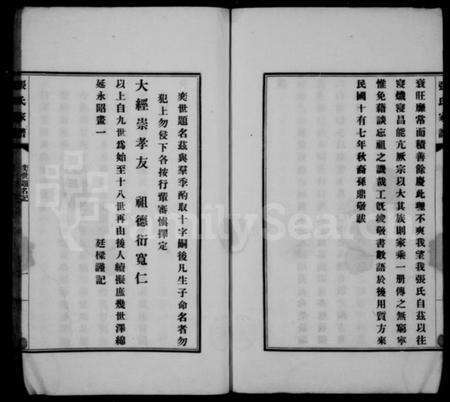 衰旺靡常而積善餘慶此理不爽我望我張氏自茲以往
寖熾寖昌能亢厥宗以大其族則家乘一冊傳之無窮寧
惟免藉談忘祖之譏哉工既竣敬書數語於後用質方來
民國十有七年秋裔孫鼎敬跋
張氏家譜
奕世題名茲與羣季酌取十字嗣後凡生子命名者勿
犯上勿侵下各按行輩審慎擇定
大經崇孝友 祖德衍寬仁
以上自九世爲始至十八世再由後人續擬庶幾世澤綿
延永昭畫一
廷樑謹記
張氏家譜
奕世題名記
FamilySearch